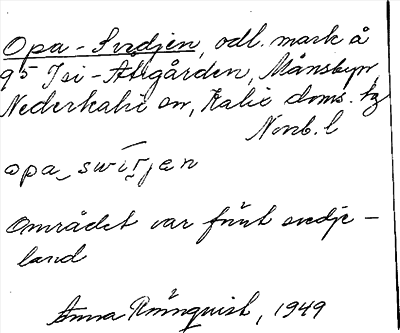 Opa-Svedjen, odl. mark å
95 Isi-Allgården, Månsbyn,
Nederkalix sn, Kalix doms. tg
Norrb. l
opa_swirjen
Området var förut svedje-
land
Anna Rönnquist, 1949